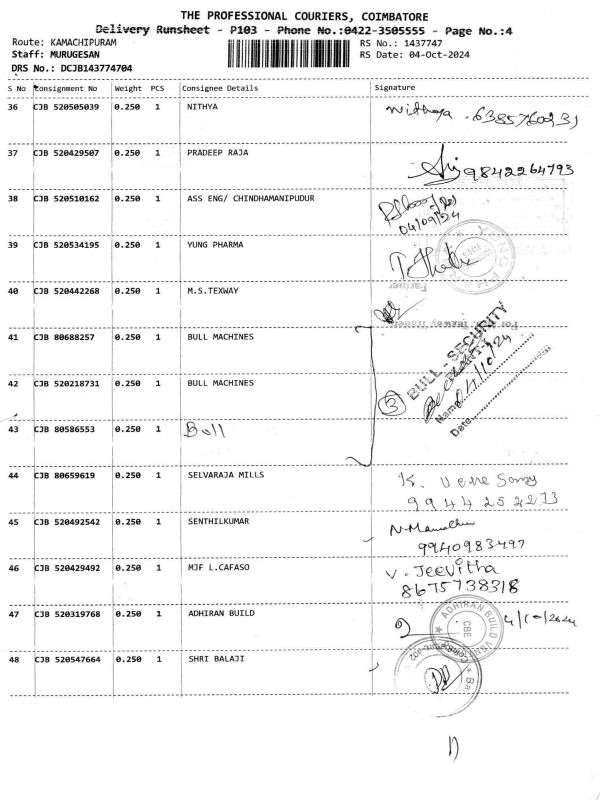 THE PROFESSIONAL COURIERS, COIMBATORE
Delivery Runsheet - P103 - Phone No.:0422-3505555 - Page No.:4
Route: KAMACHIPURAM RS No.: 1437747
Staff: MURUGESAN RS Date: 04-Oct-2024
DRS No.: DCJB143774704
S No Consignment No Weight PCS Consignee Details Signature
36 CJB 520505039 0.250 1 NITHYA Nithya
37 CJB 520429507 0.250 1 PRADEEP RAJA 9842264793
38 CJB 520510162 0.250 1 ASS ENG/ CHINDHAMANIPUDUR
04/09/24
39 CJB 520534195 0.250 1 YUNG PHARMA
40 CJB 520442268 0.250 1 M.S.TEXWAY
Partner
For Texway Traders
41 CJB 80688257 0.250 1 BULL MACHINES
BULL - SECURITY
42 CJB 520218731 0.250 1 BULL MACHINES
3
Name
Date
43 CJB 80586553 0.250 1 Bull
44 CJB 80659619 0.250 1 SELVARAJA MILLS K.
45 CJB 520492542 0.250 1 SENTHILKUMAR
9940983497
46 CJB 520429492 0.250 1 MJF L.CAFASO V. Jeevitha
8675738318
47 CJB 520319768 0.250 1 ADHIRAN BUILD 4/10/2024
ADHIRAN BUILD
CBE
48 CJB 520547664 0.250 1 SHRI BALAJI